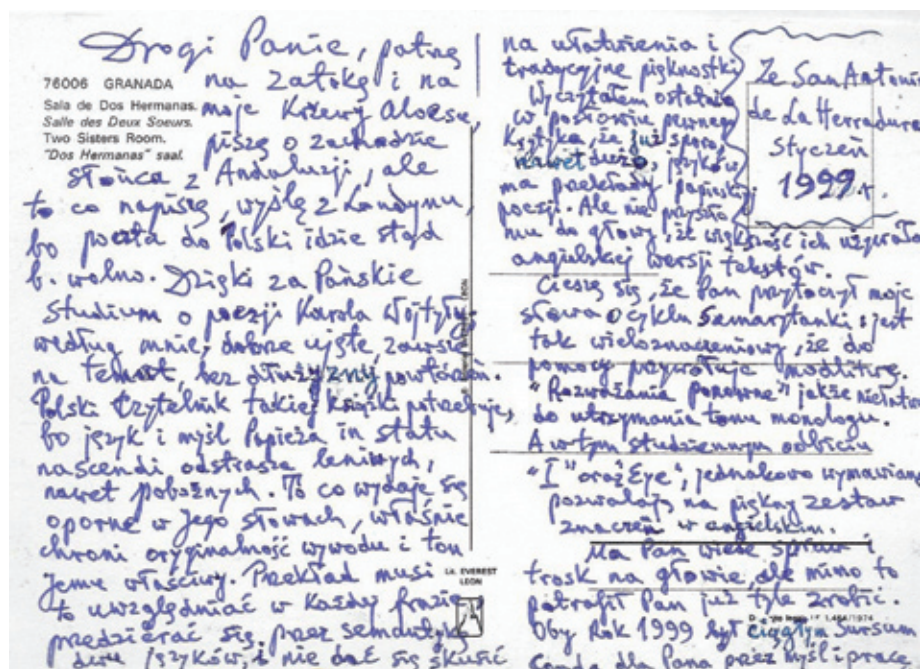 Drogi Panie, patrzę
na Zatokę i na
moje Krzewy Aloesu,
piszę o zachodzie
słońca z Andaluzji, ale
to co napiszę, wyślę z Londynu,
bo poczta do Polski idzie stąd
b. wolno. Dzięki za Pańskie
studium o poezji Karola Wojtyły
według mnie, dobrze ujęte, zawsze
na temat, bez dłużyzny powtórzeń.
Polski Czytelnik takiej książki potrzebuje,
bo język i myśl Papieża in statu
nascendi odstrasza leniwych,
nawet pobożnych. To co wydaje się
oporne w Jego słowach, właśnie
chroni oryginalność wywodu i ton
Jemu właściwy. Przekład musi
to uwzględniać w każdej frazie
przedzierać się przez semantykę
dwu języków, i nie dać się skusić
76006 GRANADA
Sala de Dos Hermanas.
Salle des Deux Soeurs.
Two Sisters Room.
"Dos Hermanas" saal.
Ld. EVEREST
LEON
na ułatwienia i
tradycyjne pięknostki
Wyczytałem ostatnio
w posłowiu pewnego
Krytyka, że już sporo
nawet dużo, języków
ma przekłady papieskiej
poezji. Ale nie przyszło
mu do głowy, że większość ich używała
angielskiej wersji tekstów.
Cieszę się, że Pan przytoczył moje
słowa o cyklu Samarytanki: jest
tak wieloznaczeniowy, że do
pomocy przywołuje modlitwę.
"Rozważania ponowne" jakże niełatwe
do utrzymania tonu monologu.
A w tym studziennym odbiciu
"I" oraz "Eye", jednakowo wymawiane
pozwalają na piękny zestaw
znaczeń w angielskim.
Ma Pan wiele spraw i
trosk na głowie, ale mimo to
potrafił Pan już tyle zrobić.
Oby Rok 1999 był ciągłym Sursum
Corda dla Pana przez myśl i pracę
Ze San Antonio
de La Herradura
Styczeń
1999 r.